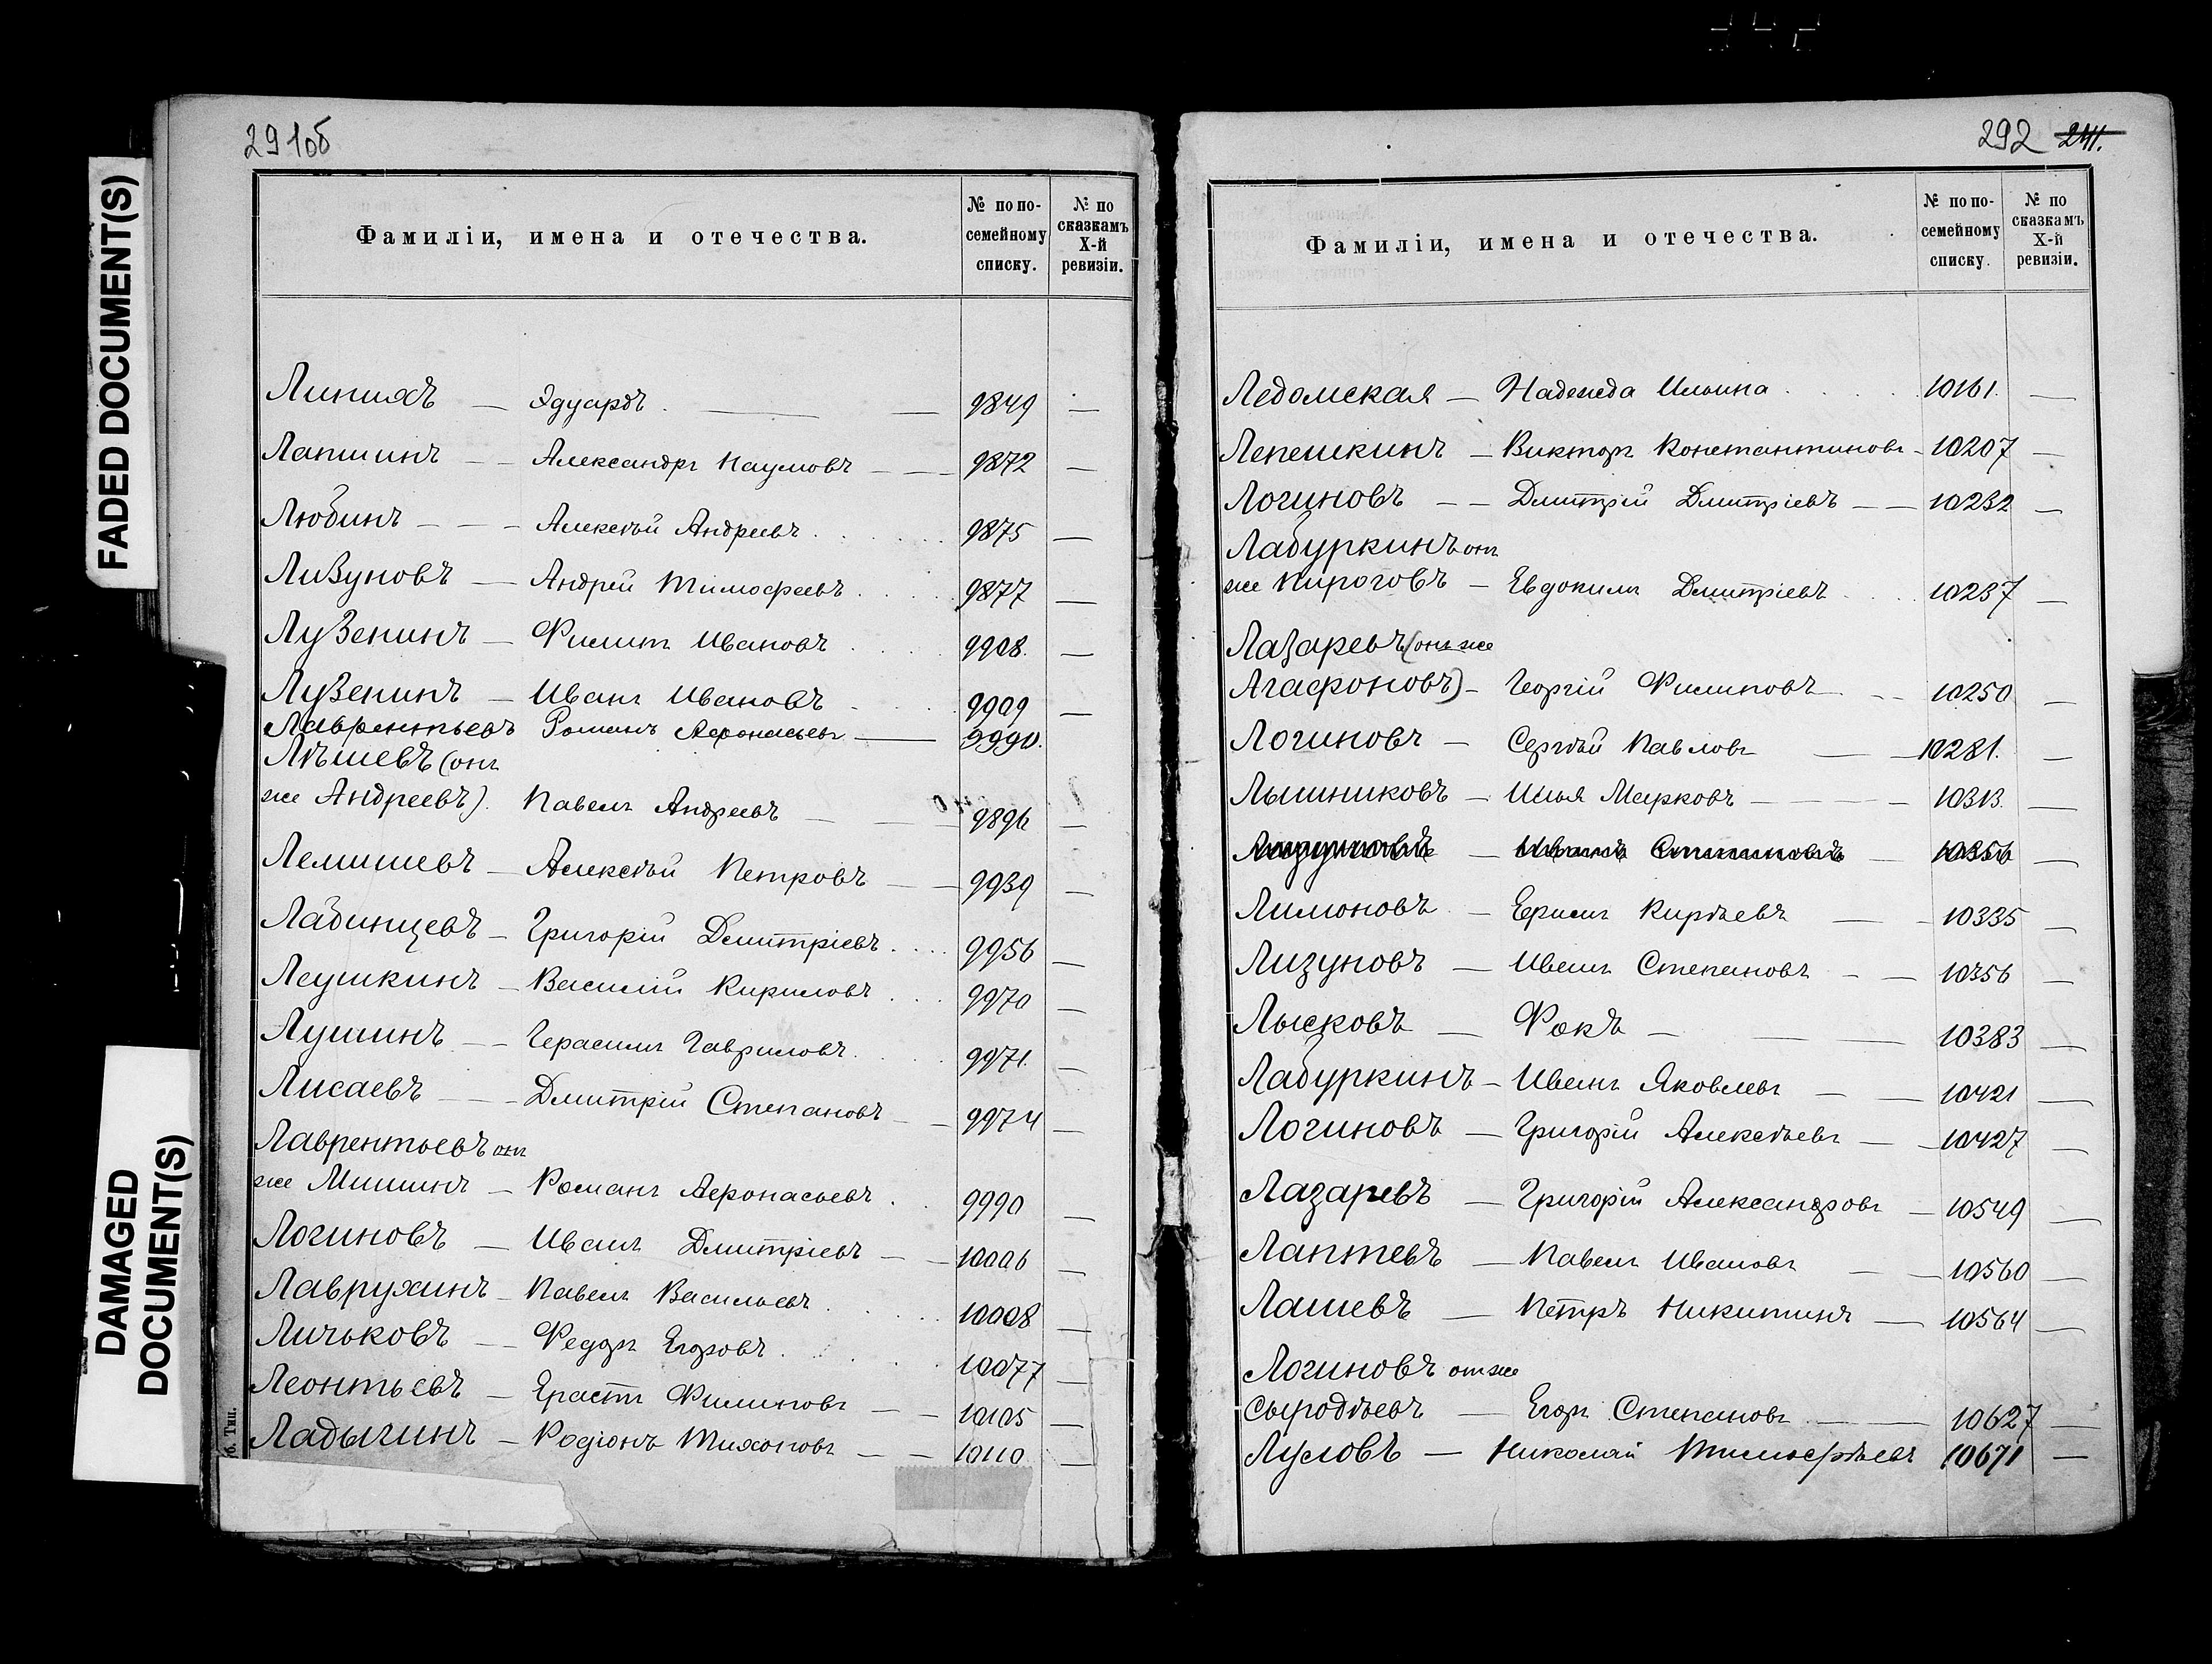 FADED DOCUMENT(S)
DAMAGED
DOCUMENT(S)
291об
Фамиліи, имена и отечества.
№ по по-
семейному
списку.
№ по
сказкамъ
X-й
ревизіи.
Линияхъ — Эдуардъ. — — 9849 —
Лапшинъ — — Александръ Наумовъ — — 9872 —
Любинъ — — — Алексѣй Андреевъ . . . . . 9875 —
Лизуновъ — Андрей Тимофеевъ . . . . 9877 —
Лузенинъ — Филипъ Ивановъ . . . . 9908. —
Лузенинъ — Иванъ Ивановъ . . . . 9909 —
Лаврентьевъ Романъ Афонасьевъ — 9990.
Лѣшевъ (онъ
же Андреевъ). Павелъ Андреевъ — — 9896 —
Лемишевъ — Алексѣй Петровъ — — 9939 —
Лабинцевъ — Григорій Дмитріевъ . . . 9956 —
Леушкинъ — Василій Кириловъ . . . 9970 —
Лушинъ — — Герасимъ Гавриловъ . . . 9971. —
Лисаевъ — — Дмитрій Степановъ — — 9974 —
Лаврентьевъ онъ
же Мишинъ — Романъ Афонасьевъ . . 9990 —
Логиновъ — Иванъ Дмитріевъ — — 10006 —
Лаврухинъ — Павелъ Васильевъ . . . . 10008 —
Личьковъ — — Федоръ Егоровъ . . . . 10077 —
Леонтьевъ — Ерастъ Филиповъ — — 10105 —
Ладыгинъ — Родіонъ Тихоновъ — — 10110 —
б. Тип.
292 241.
Фамиліи, имена и отечества.
№ по по-
семейному
списку.
№ по
сказкамъ
X-й
ревизіи.
Ледомская — Надежда Ильина . . . . 10161. —
Лепешкинъ — Викторъ Константиновъ — 10207 —
Логиновъ — — Дмитрій Дмитріевъ — — 10232 —
Лабуркинъ онъ
же Пироговъ — Евдокимъ Дмитріевъ . . . 10237 —
Лазаревъ (онъ же
Агафоновъ) — Георгій Филиповъ — — 10250 —
Логиновъ — Сергѣй Павловъ — — 10281. —
Лышниковъ — Илья Марковъ — — — 10313. —
Лизуновъ — Иванъ Степановъ — 10356
Лимоновъ — Ефимъ Кирѣевъ — — 10335 —
Лизуновъ — Иванъ Степановъ — — 10356 —
Лысковъ — Фокъ — — — 10383 —
Лабуркинъ — Иванъ Яковлевъ — — 10421 —
Логиновъ — Григорій Алексѣевъ — — 10427 —
Лазаревъ — Григорій Александровъ — 10549 —
Лаптевъ — Павелъ Ивановъ — — 10560 —
Лашевъ — Петръ Никитинъ — 10564 —
Логиновъ онъ же
Сыродѣевъ — Егоръ Степановъ — — 10627 —
Лусловъ — Николай Тимофѣевъ 10671 —